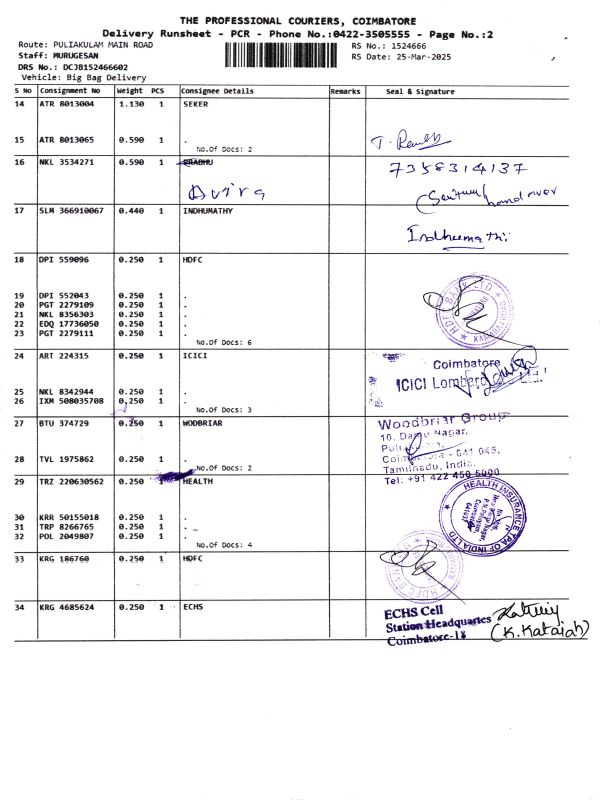 THE PROFESSIONAL COURIERS, COIMBATORE
Delivery Runsheet - PCR - Phone No.:0422-3505555 - Page No.:2
Route: PULIAKULAM MAIN ROAD RS No.: 1524666
Staff: MURUGESAN RS Date: 25-Mar-2025
DRS No.: DCJB152466602
Vehicle: Big Bag Delivery
S No Consignment No Weight PCS Consignee Details Remarks Seal & Signature
14 ATR 8013004 1.130 1 SEKER
15 ATR 8013065 0.590 1 .
No.Of Docs: 2
16 NKL 3534271 0.590 1 PRABHU
7358314137
17 SLM 366910067 0.440 1 INDHUMATHY
Indheemathi
18 DPI 559096 0.250 1 HDFC
19 DPI 552043 0.250 1 .
20 PGT 2279109 0.250 1 .
21 NKL 8356303 0.250 1 .
22 EDQ 17736050 0.250 1 .
23 PGT 2279111 0.250 1 .
No.Of Docs: 6
HDFC BANK LTD
24 ART 224315 0.250 1 ICICI
Coimbatore
ICICI Lombard Ltd.
25 NKL 8342944 0.250 1 .
26 IXM 508035708 0.250 1 .
No.Of Docs: 3
27 BTU 374729 0.250 1 WODBRIAR
Woodbriar Group
10, Nagar,
28 TVL 1975862 0.250 1 .
- 641 045,
Tamilnadu, India.
No.Of Docs: 2
Tel: +91 422 450 5000
29 TRZ 220630562 0.250 1 HEALTH
HEALTH INSURANCE TPA OF INDIA LTD
30 KRR 50155018 0.250 1 .
31 TRP 8266765 0.250 1 .
32 POL 2049807 0.250 1 .
No.Of Docs: 4
33 KRG 186760 0.250 1 HDFC
34 KRG 4685624 0.250 1 ECHS
ECHS Cell
Station Headquartes
Coimbatore-18
(K. Kataiah)